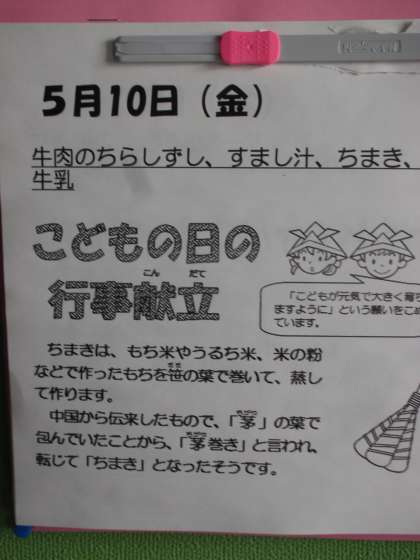 5月10日（金）
牛肉のちらしずし、すまし汁、ちまき、
牛乳
こどもの日の
こん だて
行事献立
「こどもが元気で大きく育ち
ますように」という願いをこめ
ています。
ちまきは、もち米やうるち米、米の粉
などで作ったもちを笹の葉で巻いて、蒸し
て作ります。
中国から伝来したもので、「茅」の葉で
包んでいたことから、「茅巻き」と言われ、
転じて「ちまき」となったそうです。